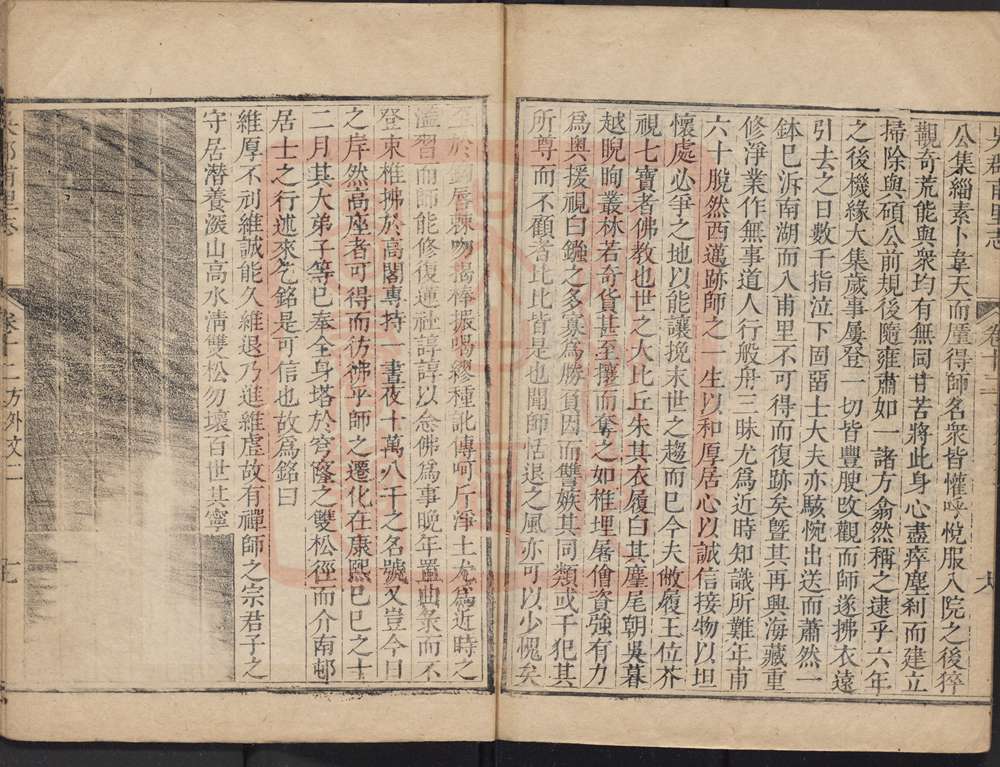 公集緇素卜韋天而屬得師名衆皆懽呼悅服入院之後猝
觀奇荒能與衆均有無同甘苦將此身心盡瘁塵剎而建立
掃除與碩公前規後隨雍肅如一諸方翕然稱之逮乎六年
之後機緣大集歲事屢登一切皆豐腴改觀而師遂拂衣遠
引去之日數千指泣下固留士大夫亦駭惋出送而蕭然一
鉢已泝南湖而入甫里不可得而復跡矣暨其再興海藏重
修淨業作無事道人行般舟三昧尤爲近時知識所難年甫
六十脫然西邁跡師之一生以和厚居心以誠信接物以坦
懷處必爭之地以能讓挽末世之趨而已今夫敝屣王位芥
視七寶者佛教也世之大比丘朱其衣履白其麈尾朝吳暮
越睨眴叢林若奇貨甚至攘而奪之如椎埋屠儈資強有力
爲奥援視曰鏹之多寡爲勝負因而讐嫉其同類或干犯其
所尊而不顧者比比皆是也聞師恬退之風亦可以少愧矣
於 唇棘吻揭棒振喝繆種訛傳呵斥淨土尤爲近時之
濫習而師能修復蓮社諄諄以念佛爲事晚年置曲彔而不
登束椎拂於高閣專持一晝夜十萬八千之名號又豈今日
之岸然高座者可得而彷彿乎師之遷化在康熙己巳之十
二月其大弟子等已奉全身塔於穹窿之雙松徑而介南邨
居士之行述來乞銘是可信也故爲銘曰
維厚不刻維誠能久維退乃進維虛故有禪師之宗君子之
守居潛養深山高水清雙松勿壞百世其寧
卷十二方外文二